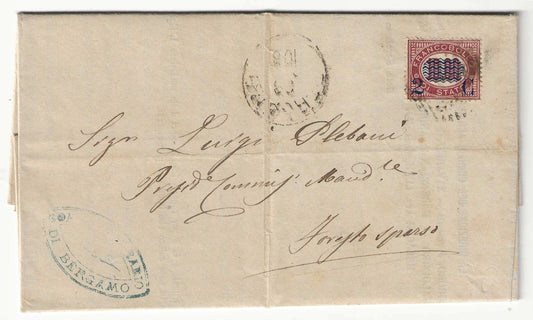 FRANCOBOLLO
DI STATO
2 C
10
Sigr Luigi Plebani
Presid.e Commis.e Mand.le
Foresto sparso
DI BERGAMO